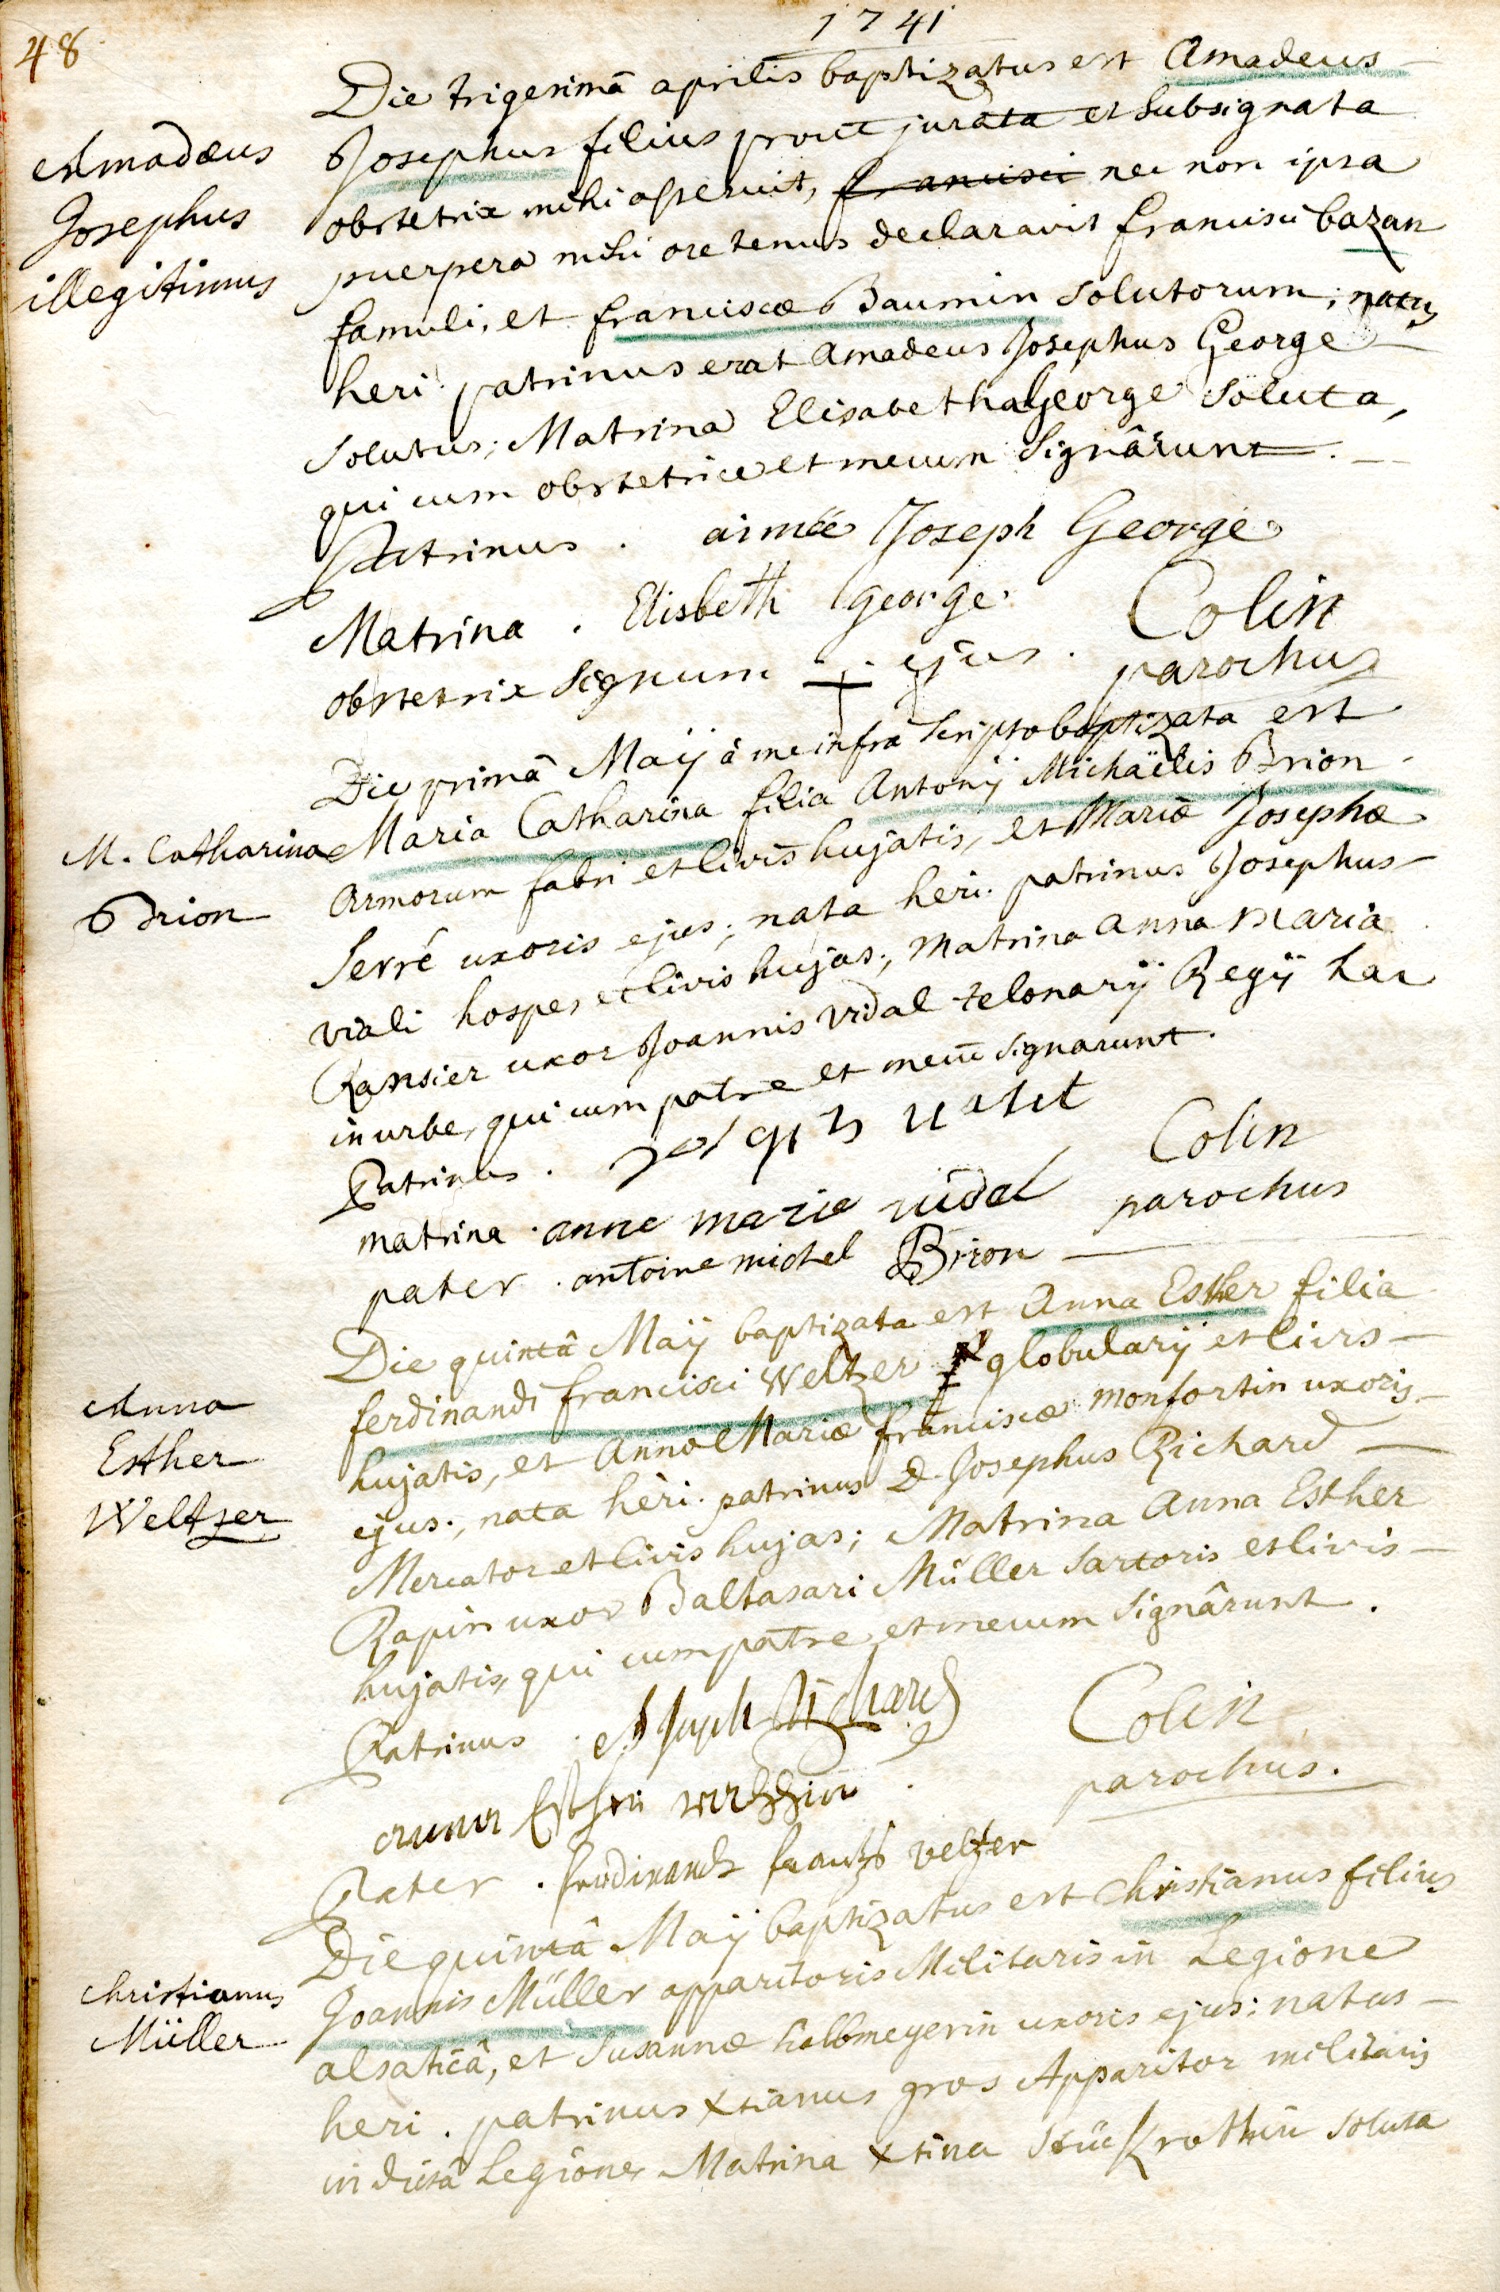 48
1741
Die trigesimâ aprilis baptizatus est Amadeus
Josephus filius prout jurata et subsignata
obstetrix mihi asseruit, francisci nec non ipsa
puerpera mihi ore tenus declaravit francisci bazan
famuli, et franciscæ Baumin solutorum; natus
heri. patrinus erat Amadeus Josephus George
solutus; Matrina Elisabetha George soluta,
qui cum obstetrice et mecum signârunt.
Amadæus
Josephus
illegitimus
Patrinus. aimée Joseph George
Matrina. Elisbeth george
obstetrix signum + ejus.
Colin
parochus
Die primâ Maÿ à me infra scripto baptizata est
Maria Catharina filia Antonÿ Michaëlis Brion
armorum fabri et civis hujatis, et Mariæ Josephæ
Serré uxoris ejus; nata heri. patrinus Josephus
viali hospes et civis hujas; Matrina anna Maria
Ransier uxor Joannis vidal telonarÿ Regÿ hac
in urbe, qui cum patre et mecū signarunt.
M. Catharina
Brion
Patrinus.
matrina. anne marie vidal
pater. antoine michel Brion
Colin
parochus
Die quintâ Maÿ baptizata est Anna Esther filia
ferdinandi francisci Weltzer globularÿ et civis
hujatis, et Annæ Mariæ franciscæ monfortin uxoris
ejus; nata heri. patrinus D. Josephus Richard
Mercator et civis hujas; Matrina Anna Esther
Rapin uxor Baltasari Müller sartoris et civis
hujatis, qui cum patre et mecum signârunt.
Anna
Esther
Weltzer
Patrinus. Joseph Richard
anna Esther
Pater. ferdinandt frantz veltzer
Colin
parochus.
Die quintâ Maÿ baptizatus est christianus filius
Joannis Müller apparitoris Militaris in Legione
alsaticâ, et Susannæ halbmeyerin uxoris ejus; natus
heri. patrinus xtianus gros Apparitor militaris
in dictâ Legione, Matrina xtina soluta
Christianus
Müller